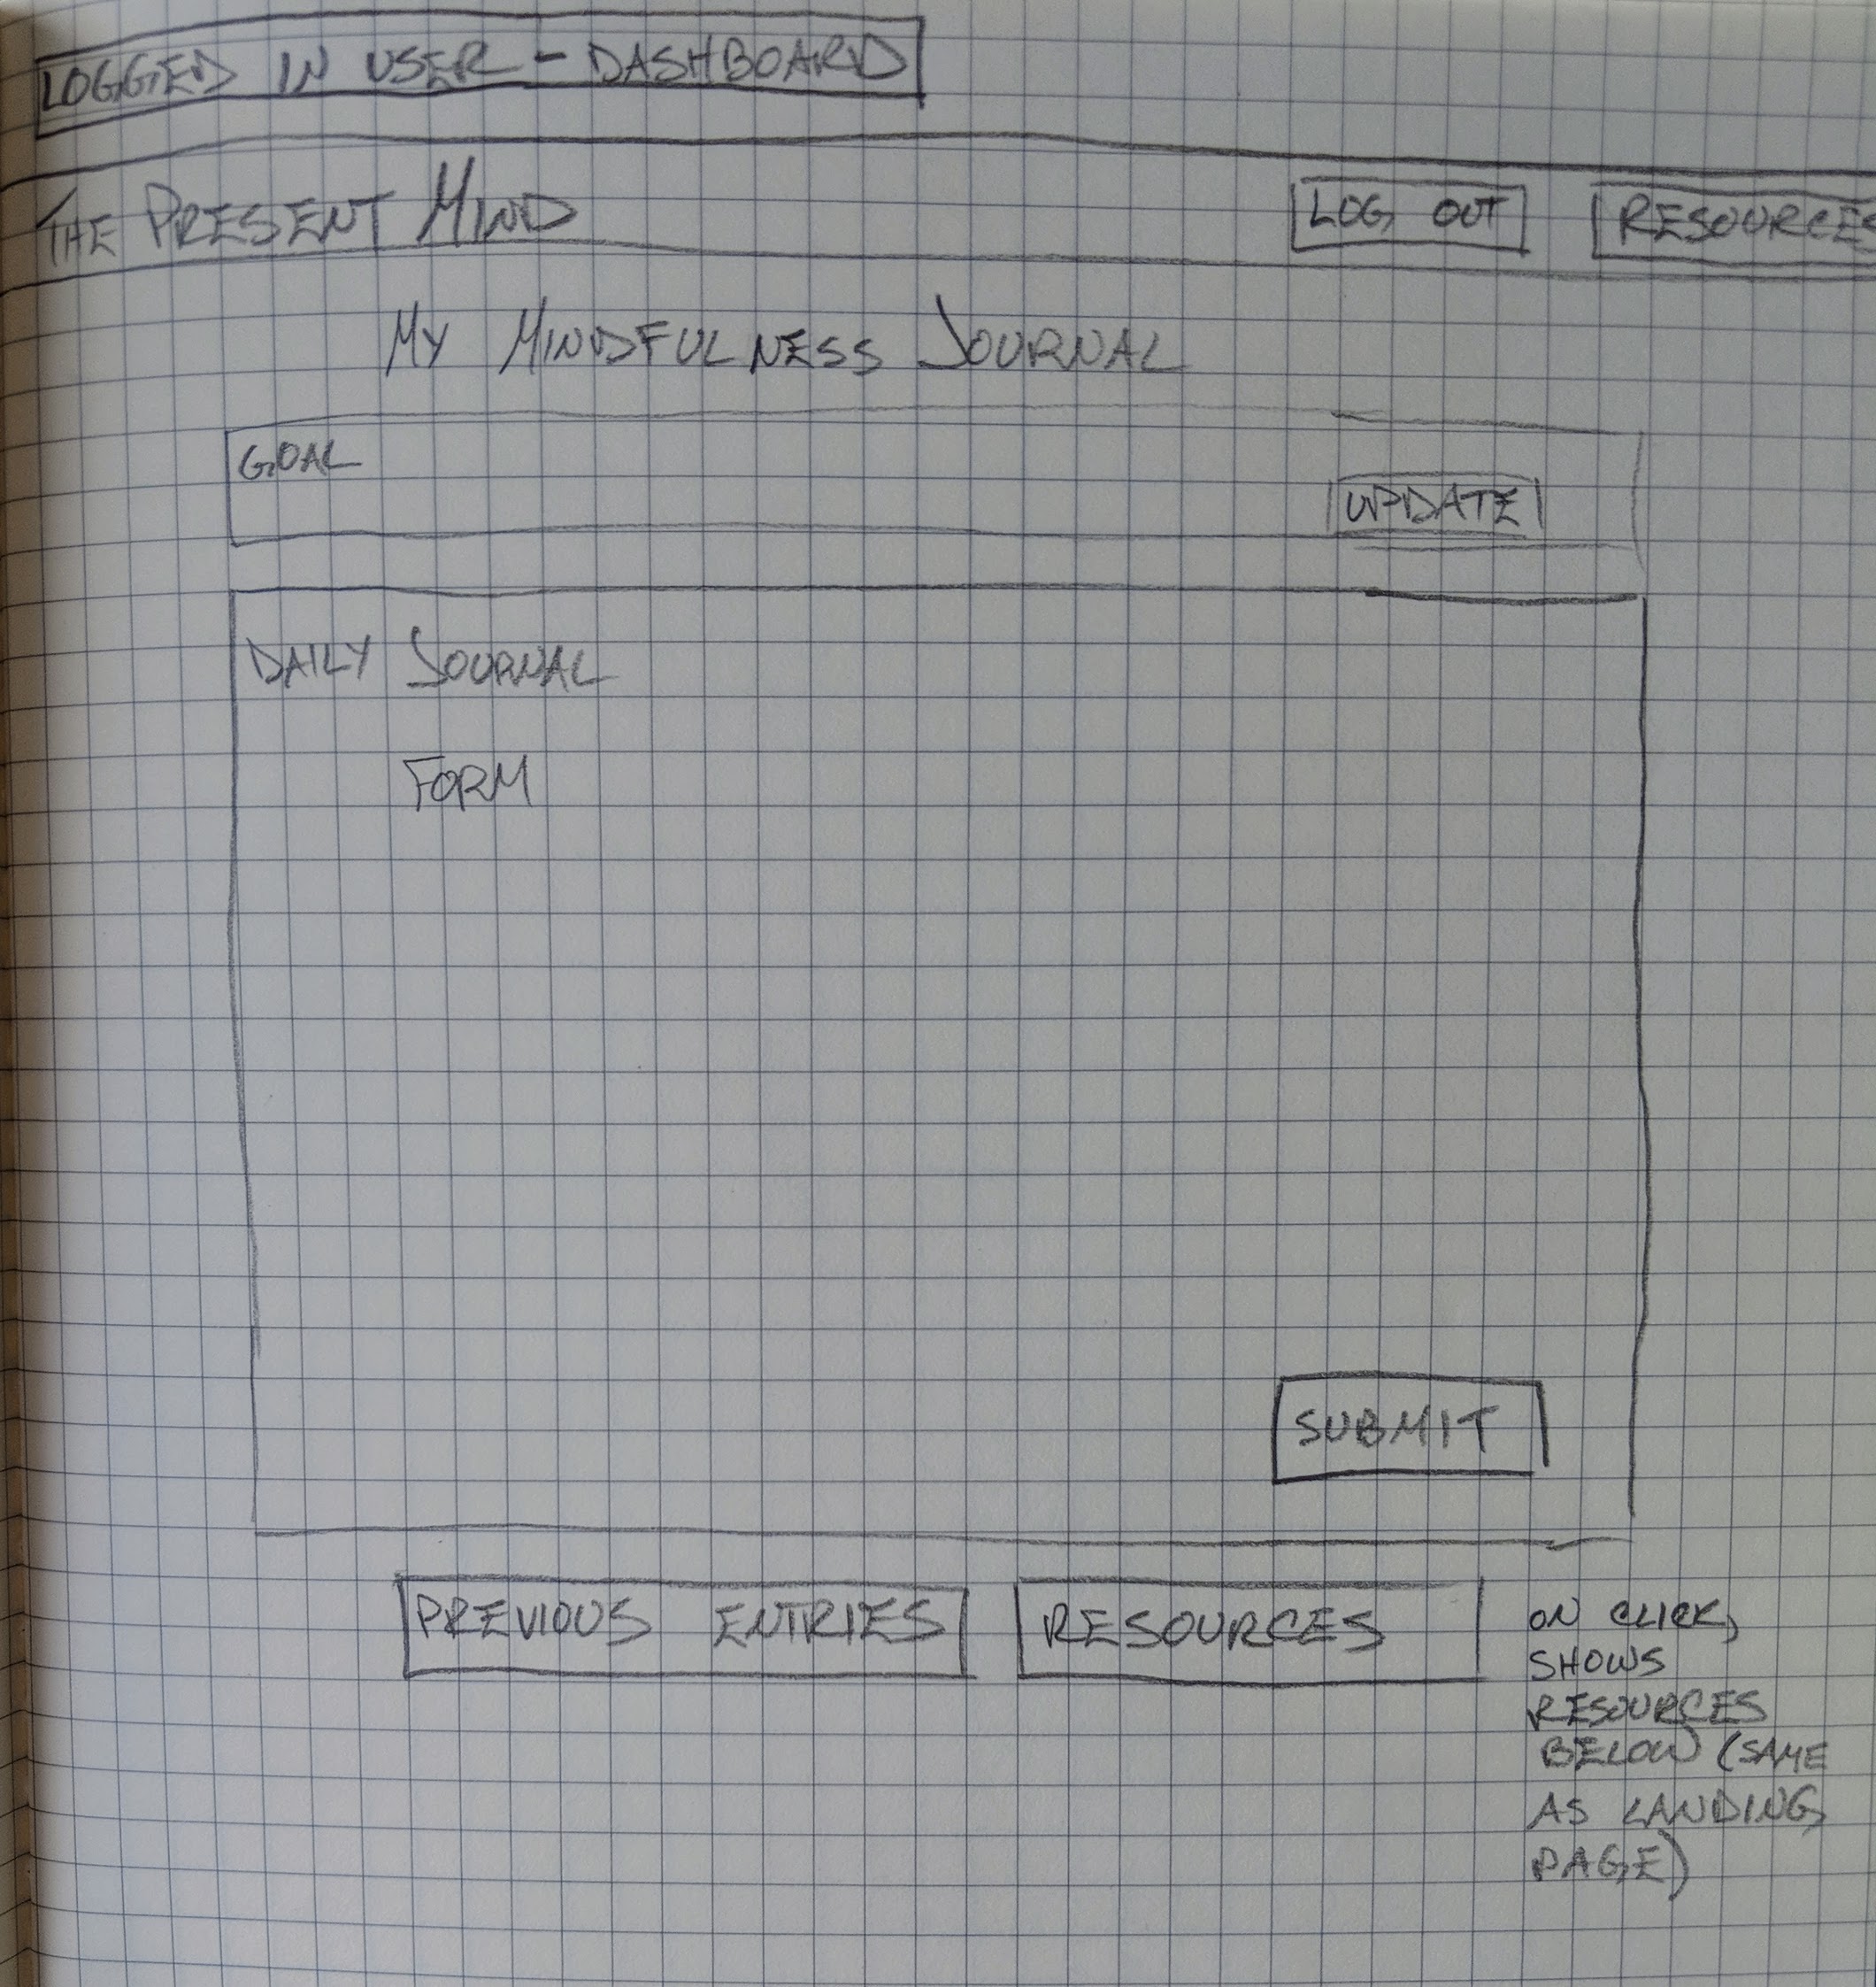 LOGGED IN USER - DASHBOARD
THE PRESENT MIND
LOG OUT
RESOURCES
MY MINDFULNESS JOURNAL
GOAL
UPDATE
DAILY JOURNAL
FORM
SUBMIT
PREVIOUS ENTRIES
RESOURCES
ON CLICK,
SHOWS
RESOURCES
BELOW (SAME
AS LANDING
PAGE)